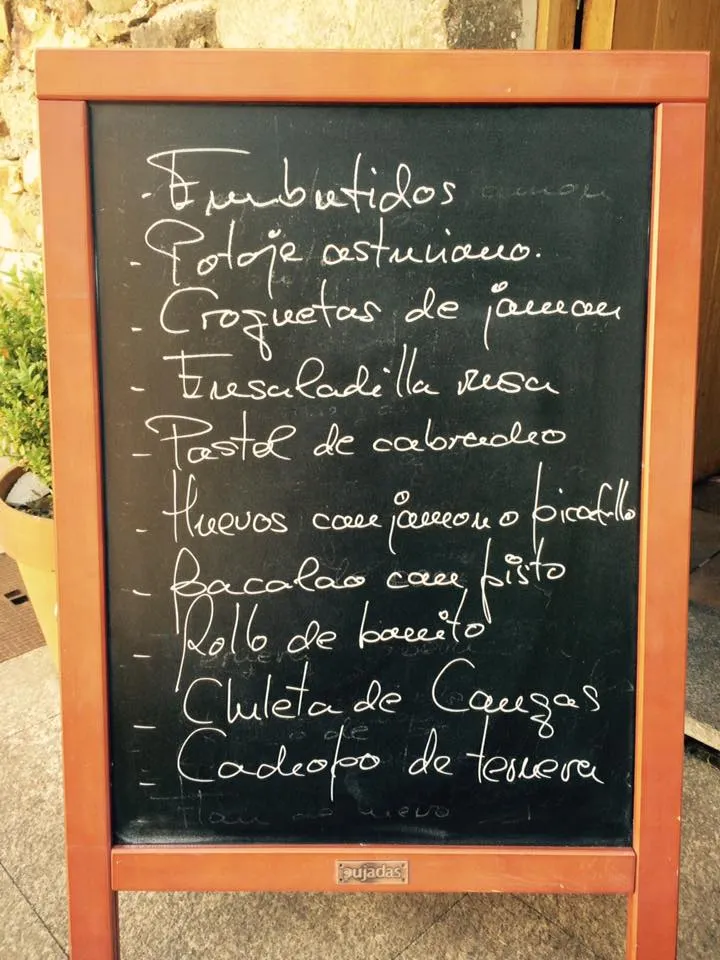 - Embutidos
- Potaje asturiano.
- Croquetas de jamon
- Ensaladilla rusa
- Pastel de cabracho
- Huevos con jamon o picadillo
- Bacalao con pisto
- Rollo de bonito
- Chuleta de Cangas
- Cachopo de ternera
pujadas